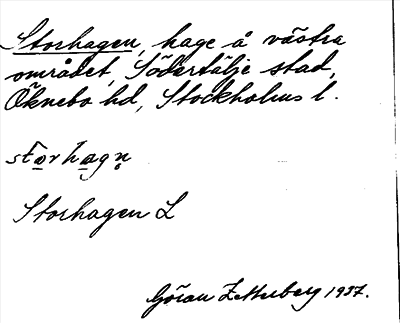 Storhagen, hage å västra
området, Södertälje stad,
Öknebo hd, Stockholms l.
stọrhạgṇ
Storhagen L
Göran Zetterberg 1937.